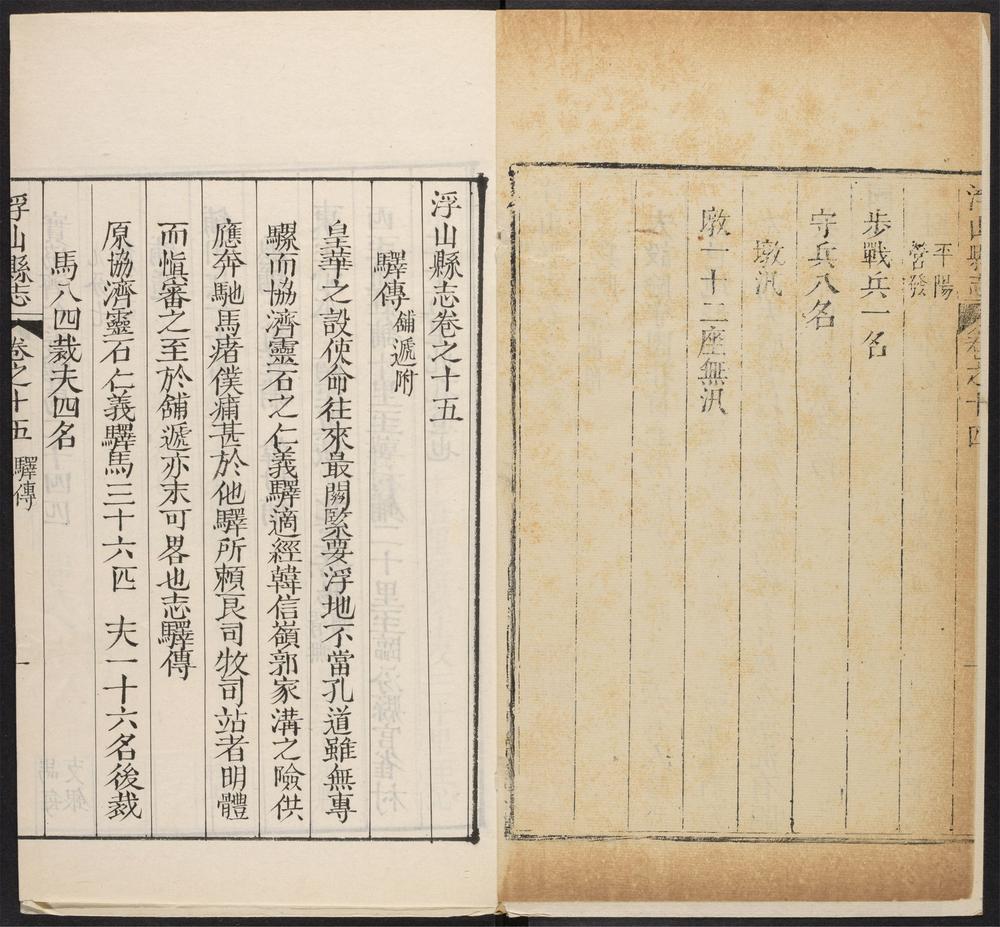 浮山縣志 卷之十四 一
平陽
營發
步戰兵一名
守兵八名
墩汛
墩一十二座無汛
浮山縣志卷之十五
驛傳 舖遞附
皇華之設使命往來最關緊要浮地不當孔道雖無專
驛而協濟靈石之仁義驛適經韓信嶺郭家溝之險供
應奔馳馬瘏僕痡甚於他驛所賴良司牧司站者明體
而愼審之至於舖遞亦未可畧也志驛傳
原協濟靈石仁義驛馬三十六匹 夫一十六名後裁
馬八匹裁夫四名
浮山縣志 卷之十五 驛傳 一